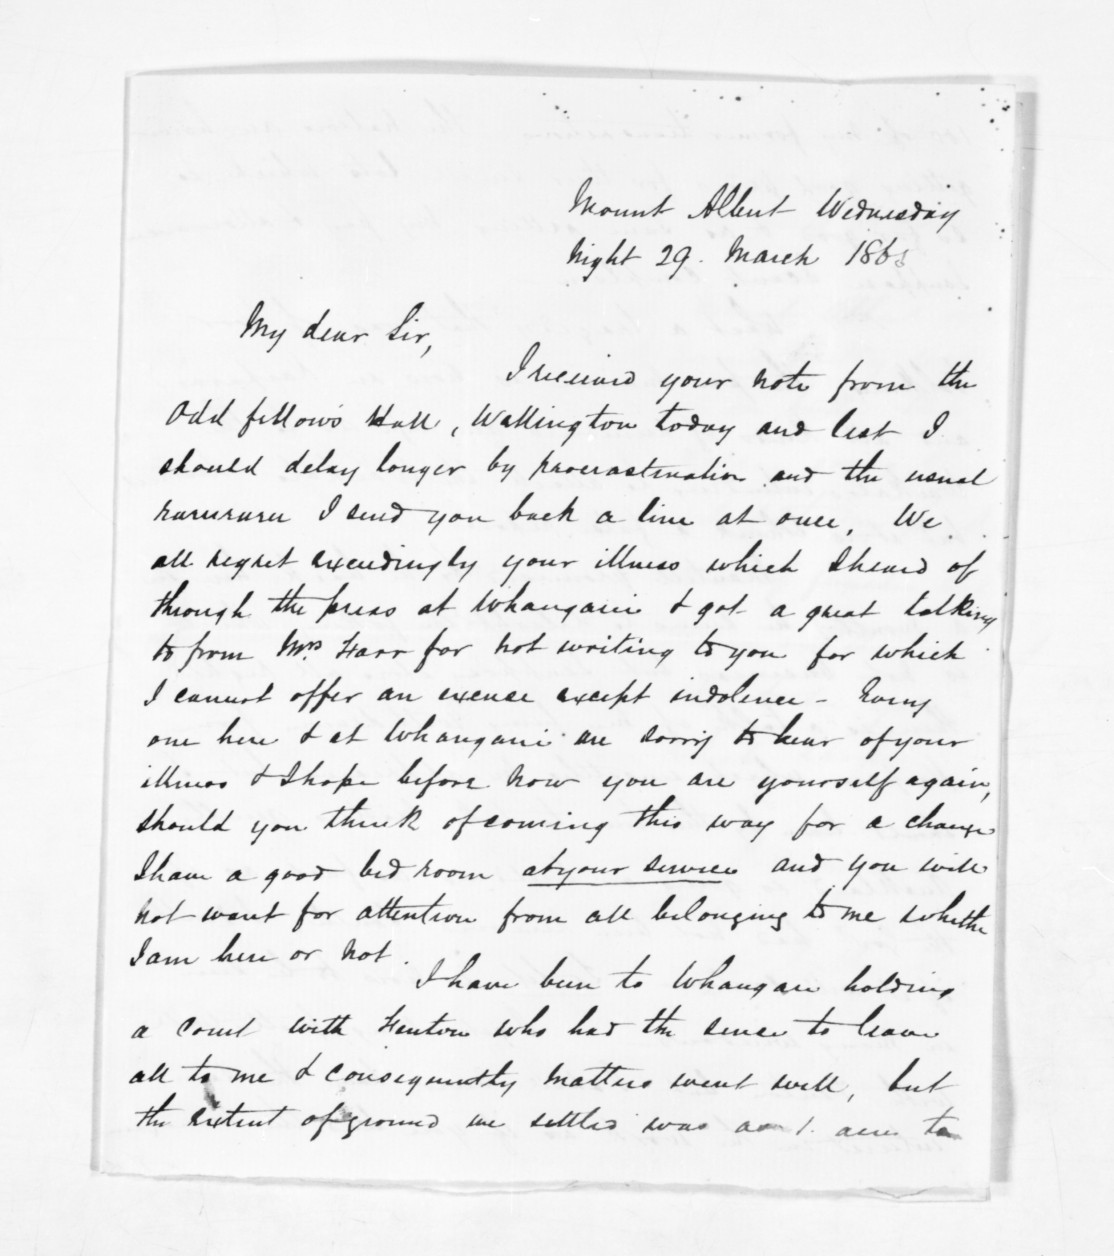 Mount Albert Wednesday
Night 29. March 1865
My dear Sir,
I received your note from the
Odd fellows Hall, Wellington today and lest I
should delay longer by procrastination and the usual
raruraru I send you back a line at once, We
all regret exceedingly your illness which I heard of
through the press at Whangarei & got a great talking
to from Mrs Farr for not writing to you for which
I cannot offer an excuse except indolence - Every
one here & at Whangarei are sorry to hear of your
illness & I hope before now you are yourself again,
should you think of coming this way for a change
I have a good bed room at your service and you will
not want for attention from all belonging to me whether
I am here or not.
I have been to Whangarei holding
a court with Fenton who had the sense to leave
all to me & consequently matters went well, but
the extent of ground we settled was as 1. acre to